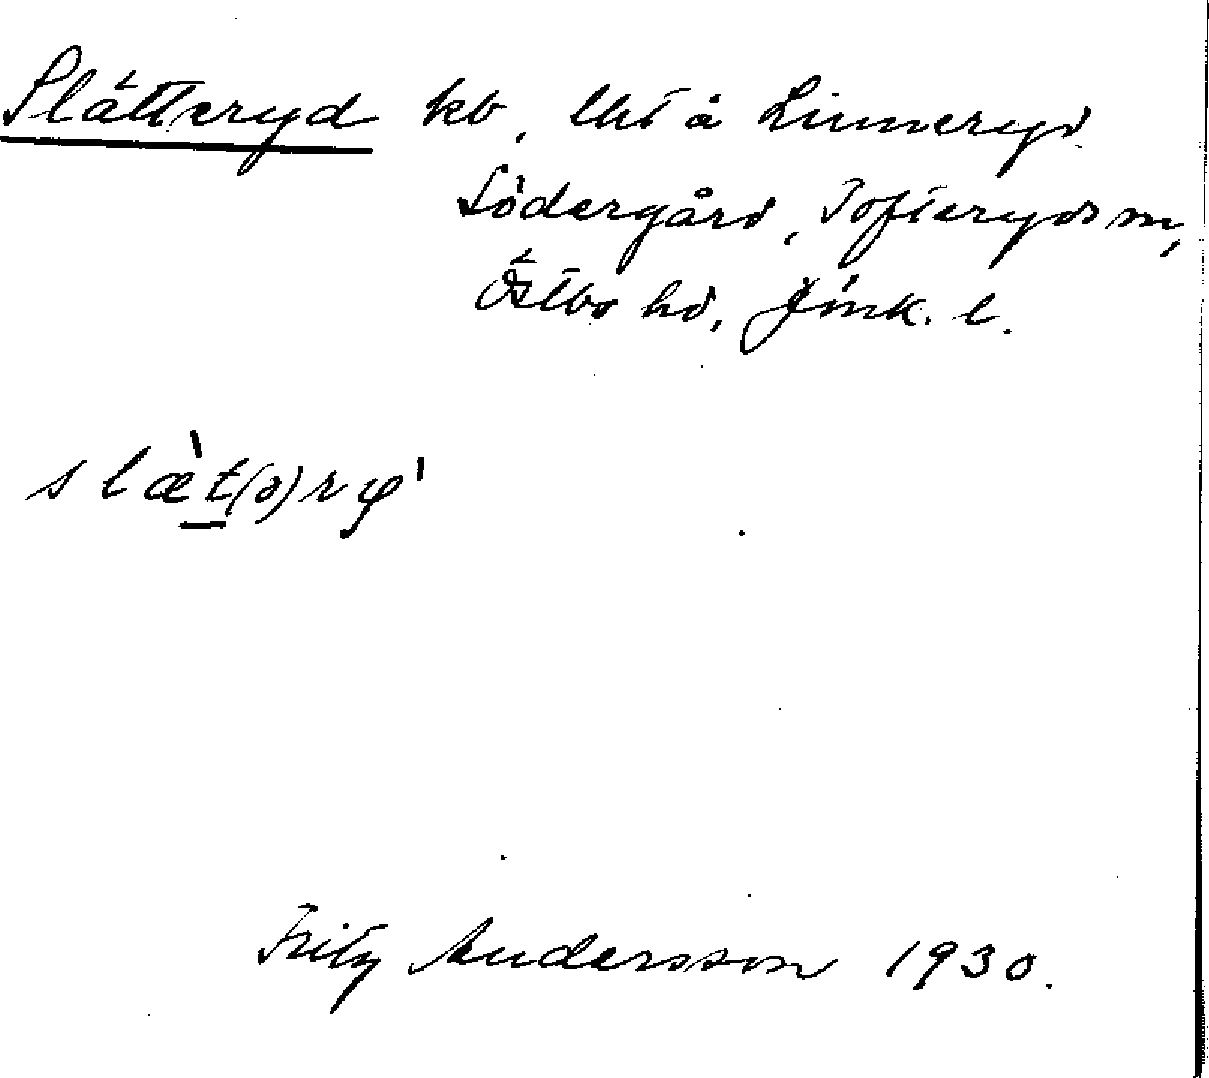 Slätteryd kb, Uht å Linneryd
Södergård, Tofteryds sn,
Östbo hd, Jönk. l.
slæ̀t(ə)ry̍
Fritz Andersson 1930.